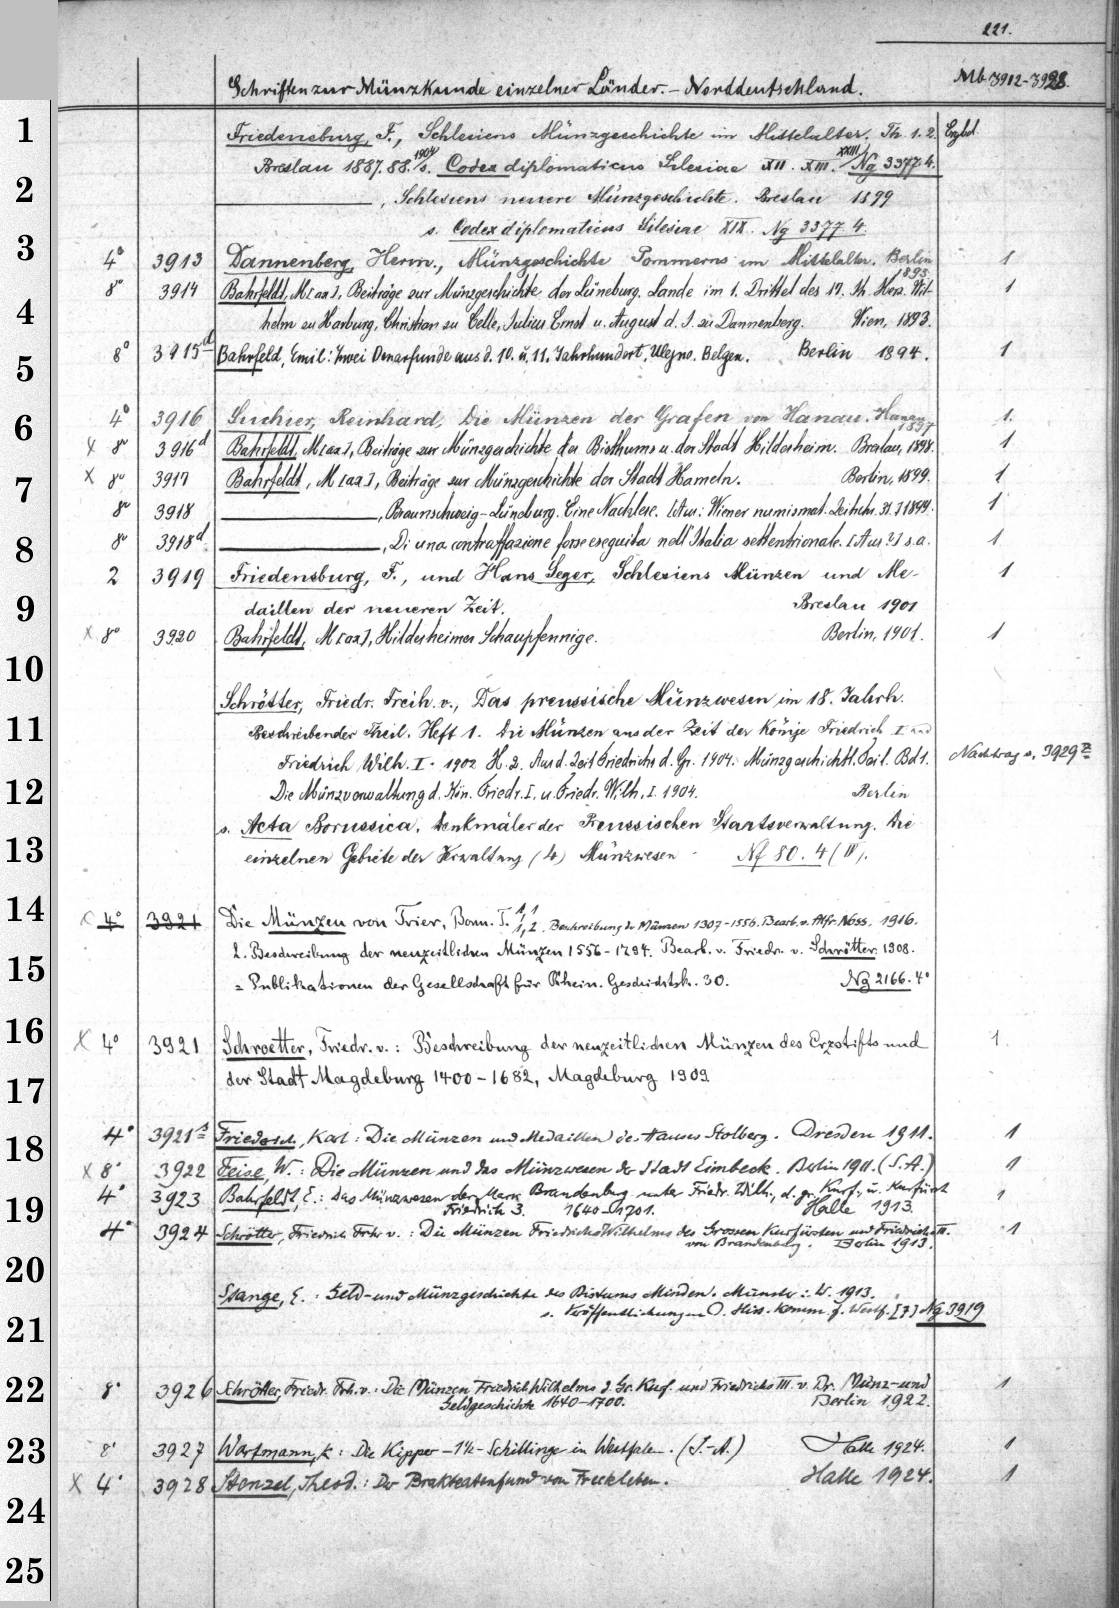 221.
Schriften zur Münzkunde einzelner Länder. – Norddeutschland. Mb 3912-3928.
1 Friedensburg, F., Schlesiens Münzgeschichte im Mittelalter. Th. 1. 2. Ergbd.
Breslau 1887. 88. 1904 s. Codex diplomaticus Silesiae XII. XIII. XXIII Ng 3377. 4.
2 ———, Schlesiens neuere Münzgeschichte. Breslau 1899
s. Codex diplomaticus Silesiae XIX. Ng 3377 4.
3 4° 3913 Dannenberg, Herm., Münzgeschichte Pommerns im Mittelalter. Berlin 1893. 1
8° 3914 Bahrfeldt, M[ax], Beiträge zur Münzgeschichte der Lüneburg. Lande im 1. Drittel des 17. Jh. Herz. Wil- 1
4 helm zu Harburg, Christian zu Celle, Julius Ernst u. August d. J. zu Dannenberg. Wien, 1893.
5 8° 3915d Bahrfeld, Emil: Zwei Denarfunde aus d. 10. u. 11. Jahrhundert, Belgen. Berlin 1894. 1
6 4° 3916 Suchier, Reinhard, Die Münzen der Grafen von Hanau. Hanau 1897 1.
x 8° 3916d Bahrfeldt, M[ax], Beiträge zur Münzgeschichte des Bisthums u. der Stadt Hildesheim. Breslau, 1898. 1
7 x 8° 3917 Bahrfeldt, M[ax], Beiträge zur Münzgeschichte der Stadt Hameln. Berlin, 1899. 1
8° 3918 ———, Braunschweig-Lüneburg. Eine Nachlese. [Aus: Wiener numismat. Zeitschr. 31.] 1899. 1
8 8° 3918d ———, Di una contraffazione forse eseguita nell'Italia settentrionale. [Aus ?] s.a. 1
2 3919 Friedensburg, F., und Hans Seger, Schlesiens Münzen und Me- 1
9 daillen der neueren Zeit. Breslau 1901
x 8° 3920 Bahrfeldt, M[ax], Hildesheimer Schaupfennige. Berlin, 1901. 1
10
11 Schrötter, Friedr. Freih. v., Das preussische Münzwesen im 18. Jahrh.
Beschreibender Theil. Heft 1. Die Münzen aus der Zeit der Könige Friedrich I. und
Friedrich Wilh. I. 1902 H. 2. Aus d. Zeit Friedrichs d. Gr. 1904. Münzgeschichtl. Teil. Bd 1. Nachtrag s. 3929z
12 Die Münzverwaltung d. Kön. Friedr. I. u. Friedr. Wilh. I. 1904. Berlin
s. Acta Borussica. Denkmäler der Preussischen Staatsverwaltung. Die
13 einzelnen Gebiete der Verwaltung (4) Münzwesen Nf 80. 4 (IV).
14 x 4° 3921 Die Münzen von Trier, Bonn. T. 1,1 1,2. Beschreibung der Münzen 1307-1556. Bearb. v. Alfr. Noss. 1916.
2. Beschreibung der neuzeitlichen Münzen 1556-1794. Bearb. v. Friedr. v. Schrötter. 1908.
15 = Publikationen der Gesellschaft für Rhein. Geschichtsk. 30. Ng 2166. 4°
16 x 4° 3921 Schroetter, Friedr. v.: Beschreibung der neuzeitlichen Münzen des Erzstifts und 1.
17 der Stadt Magdeburg 1400-1682, Magdeburg 1909.
18 4° 3921a Friederich, Karl: Die Münzen und Medaillen des Hauses Stolberg. Dresden 1911. 1
x 8° 3922 Feise, W.: Die Münzen und das Münzwesen der Stadt Einbeck. Berlin 1911. (S.A.) 1
19 4° 3923 Bahrfeldt, E.: Das Münzwesen der Mark Brandenburg unter Friedr. Wilh., d. gr. Kurf., u. Kurfürst 1
Friedrich 3. 1640-1701. Halle 1913.
4° 3924 Schrötter, Friedrich Frhr v.: Die Münzen Friedrich Wilhelms des Grossen Kurfürsten und Friedrichs III. 1
von Brandenburg. Berlin 1913.
20
Stange, E.: Geld- und Münzgeschichte des Bistums Minden. Münster i. W. 1913.
21 s. Veröffentlichungen d. Hist. Komm. f. Westf. [7] Ng 3919
22 8° 3926 Schrötter, Friedr. Frh. v.: Die Münzen Friedrich Wilhelms d. Gr. Kurf. und Friedrichs III. v. Br. Münz- und 1
Geldgeschichte 1640-1700. Berlin 1922.
23 8° 3927 Wortmann, K: Die Kipper-1½-Schillinge in Westfalen. (S.-A.) Halle 1924. 1
x 4° 3928 Stenzel, Theod.: Der Brakteatenfund von Freckleben. Halle 1924. 1
24
25